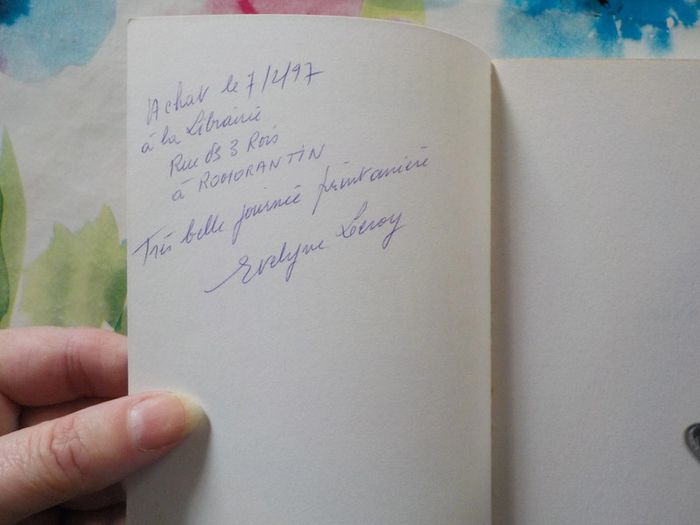 Achat le 7/2/97
à la Librairie
Rue des 3 Rois
à ROMORANTIN
Très belle journée printanière
Evelyne Leroy